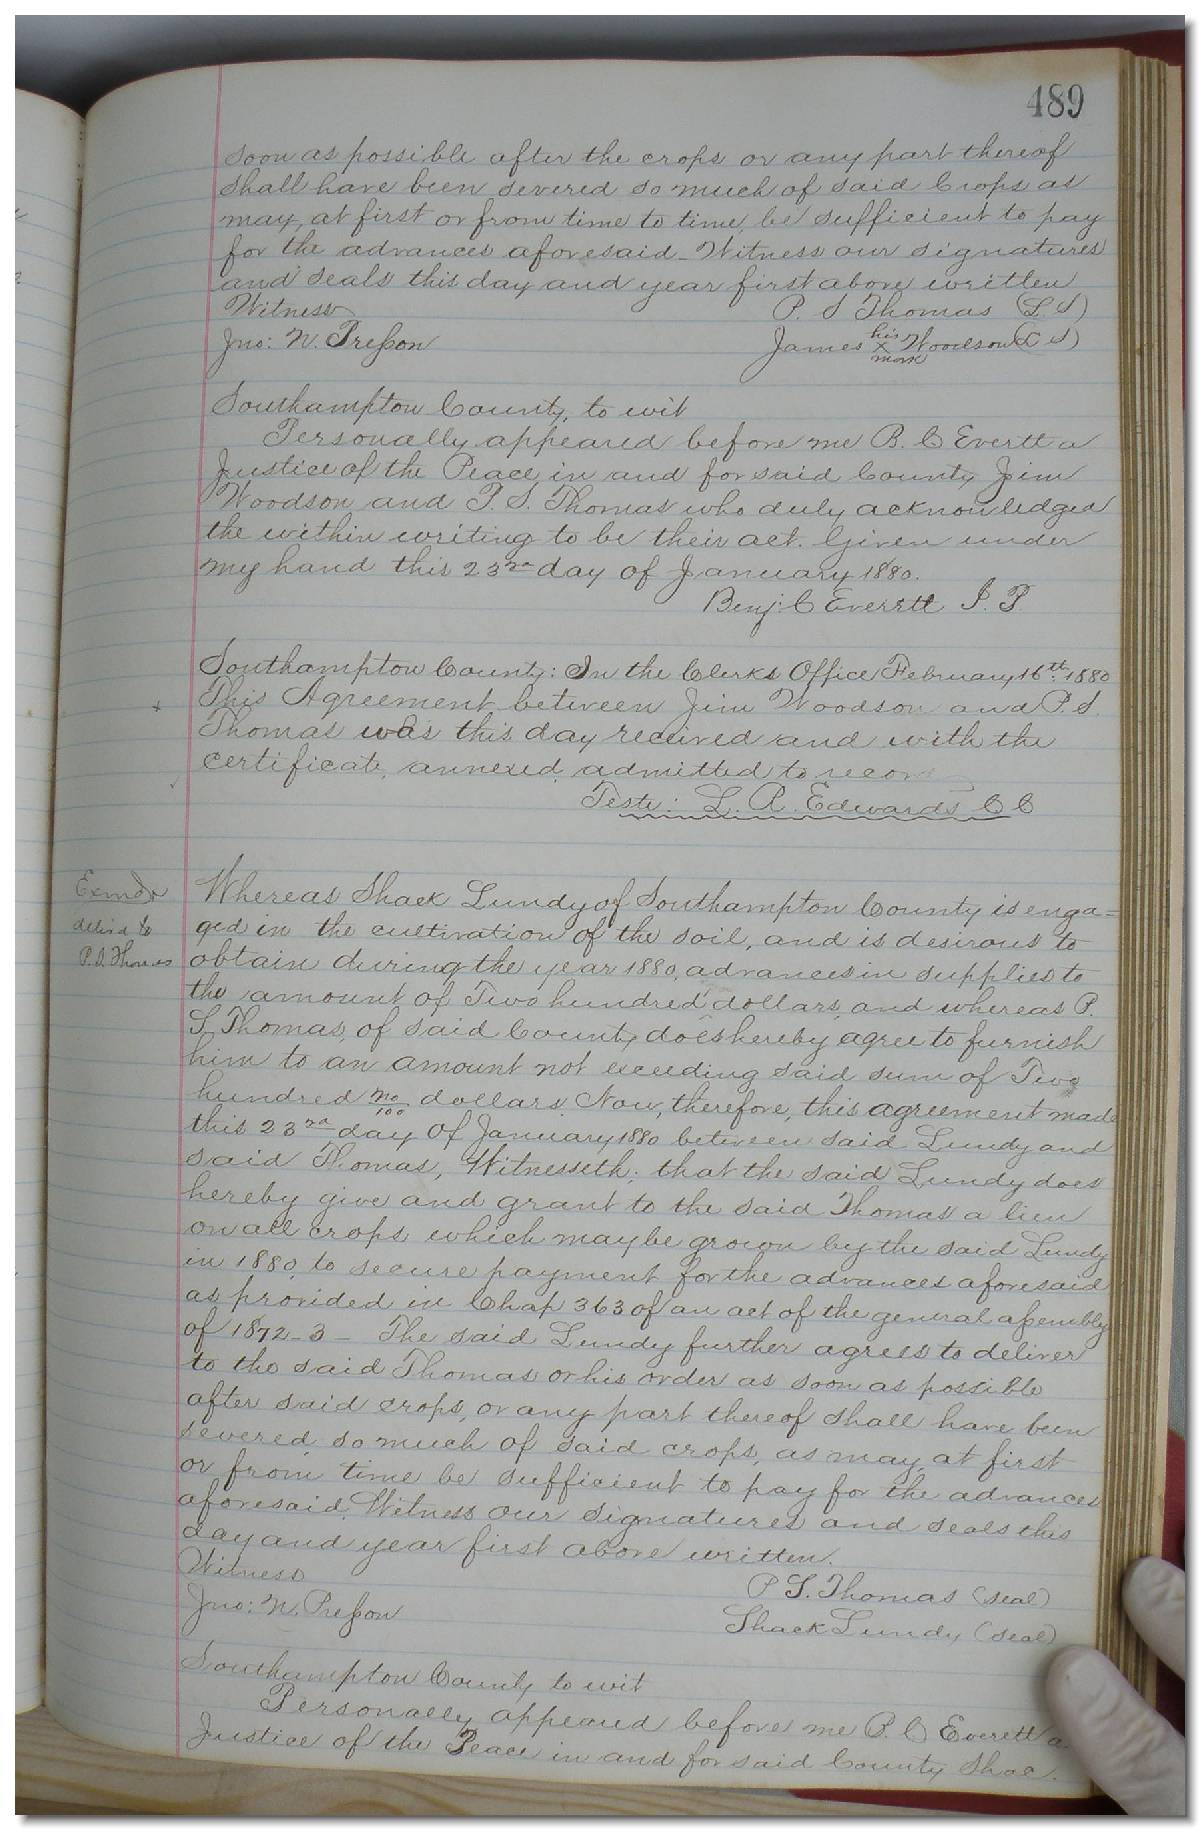 489
soon as possible after the crops or any part thereof
shall have been severed so much of said Crops as
may, at first or from time to time, be sufficient to pay
for the advances aforesaid. Witness our signatures
and seals this day and year first above written
Witness P. S Thomas (L. S)
Jno: N. Presson James his X mark Woodson (L S)
Southampton County, to wit
Personally appeared before me B. C Everett a
Justice of the Peace in and for said County, Jim
Woodson and P. S. Thomas who duly acknowledged
the within writing to be their act. Given under
my hand this 23rd day of January 1880.
Benj. C Everett J. P.
Southampton County: In the Clerks Office February 16th 1880
This Agreement between Jim Woodson and P. S.
Thomas was this day received and with the
certificate, annexed, admitted to record
Teste: L. R. Edwards C C
Exmd &
delivd to
P. S. Thomas
Whereas Shack Lundy of Southampton County is enga=
ged in the cultivation of the soil, and is desirous to
obtain during the year 1880, advances in supplies to
the amount of Two hundred dollars, and whereas P.
S. Thomas, of said County does hereby agree to furnish
him to an amount not exceeding said sum of Two
hundred no/100 dollars. Now, therefore, this agreement made
this 23rd day of January 1880 between said Lundy and
said Thomas, Witnesseth; that the said Lundy does
hereby give and grant to the said Thomas a lien
on all crops which may be grown by the said Lundy
in 1880, to secure payment for the advances aforesaid
as provided in Chap 363 of an act of the general assembly
of 1872-3- The said Lundy further agrees to deliver
to the said Thomas or his order as soon as possible
after said crops, or any part thereof shall have been
severed so much of said crops, as may, at first
or from time be sufficient to pay for the advances
aforesaid. Witness our signatures and seals this
day and year first above written.
Witness P S. Thomas (seal)
Jno: N. Presson Shack Lundy (seal)
Southampton County to wit
Personally appeared before me B. C Everett a
Justice of the Peace in and for said County Shac